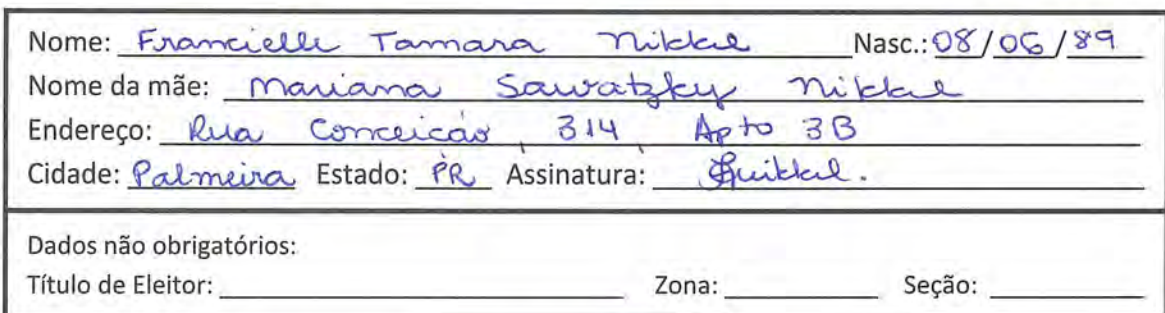 Nome: Francielle Tamara Nikkel Nasc.: 08/06/89
Nome da mãe: Mariana Sawatzky Nikkel
Endereço: Rua Conceicão, 314, Apto 3B
Cidade: Palmeira Estado: PR Assinatura:
Dados não obrigatórios:
Título de Eleitor: Zona: Seção: